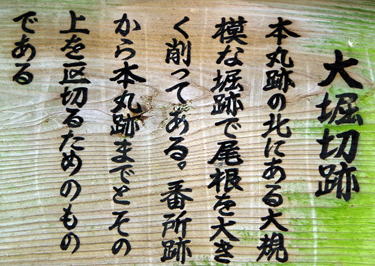 大堀切跡
本丸跡の北にある大規
模な堀跡で尾根を大き
く削ってある。番所跡
から本丸跡までとその
上を区切るためのもの
である